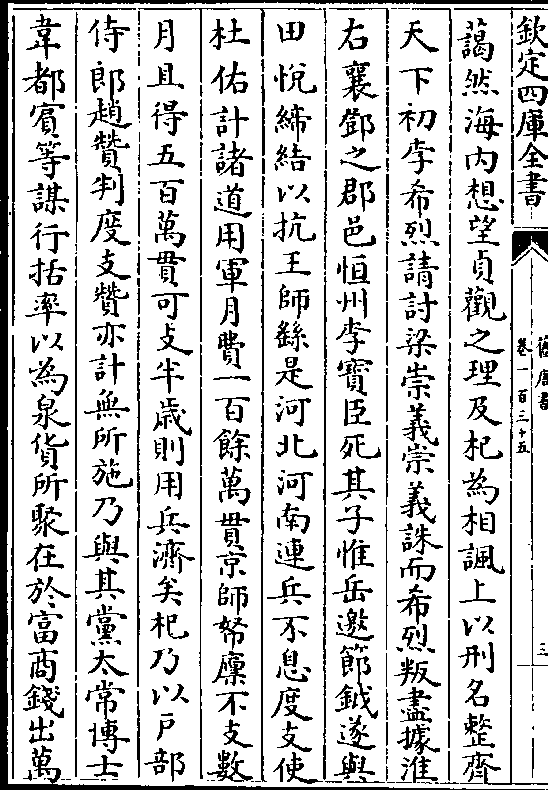 欽定四庫全書
舊唐書
卷一百三十五
三
藹然海内想望貞觀之理及杞為相諷上以刑名整齊
天下初李希烈請討梁崇義崇義誅而希烈叛盡據淮
右襄鄧之郡邑恒州李寳臣死其子惟岳邀節鉞遂與
田悦締結以抗王師繇是河北河南連兵不息度支使
杜佑計諸道用軍月費一百餘萬貫京師帑廩不支數
月且得五百萬貫可支半歲則用兵濟矣杞乃以戸部
侍郎趙贊判度支贊亦計無所施乃與其黨太常博士
韋都賔等謀行括率以為泉貨所聚在於富商錢出萬